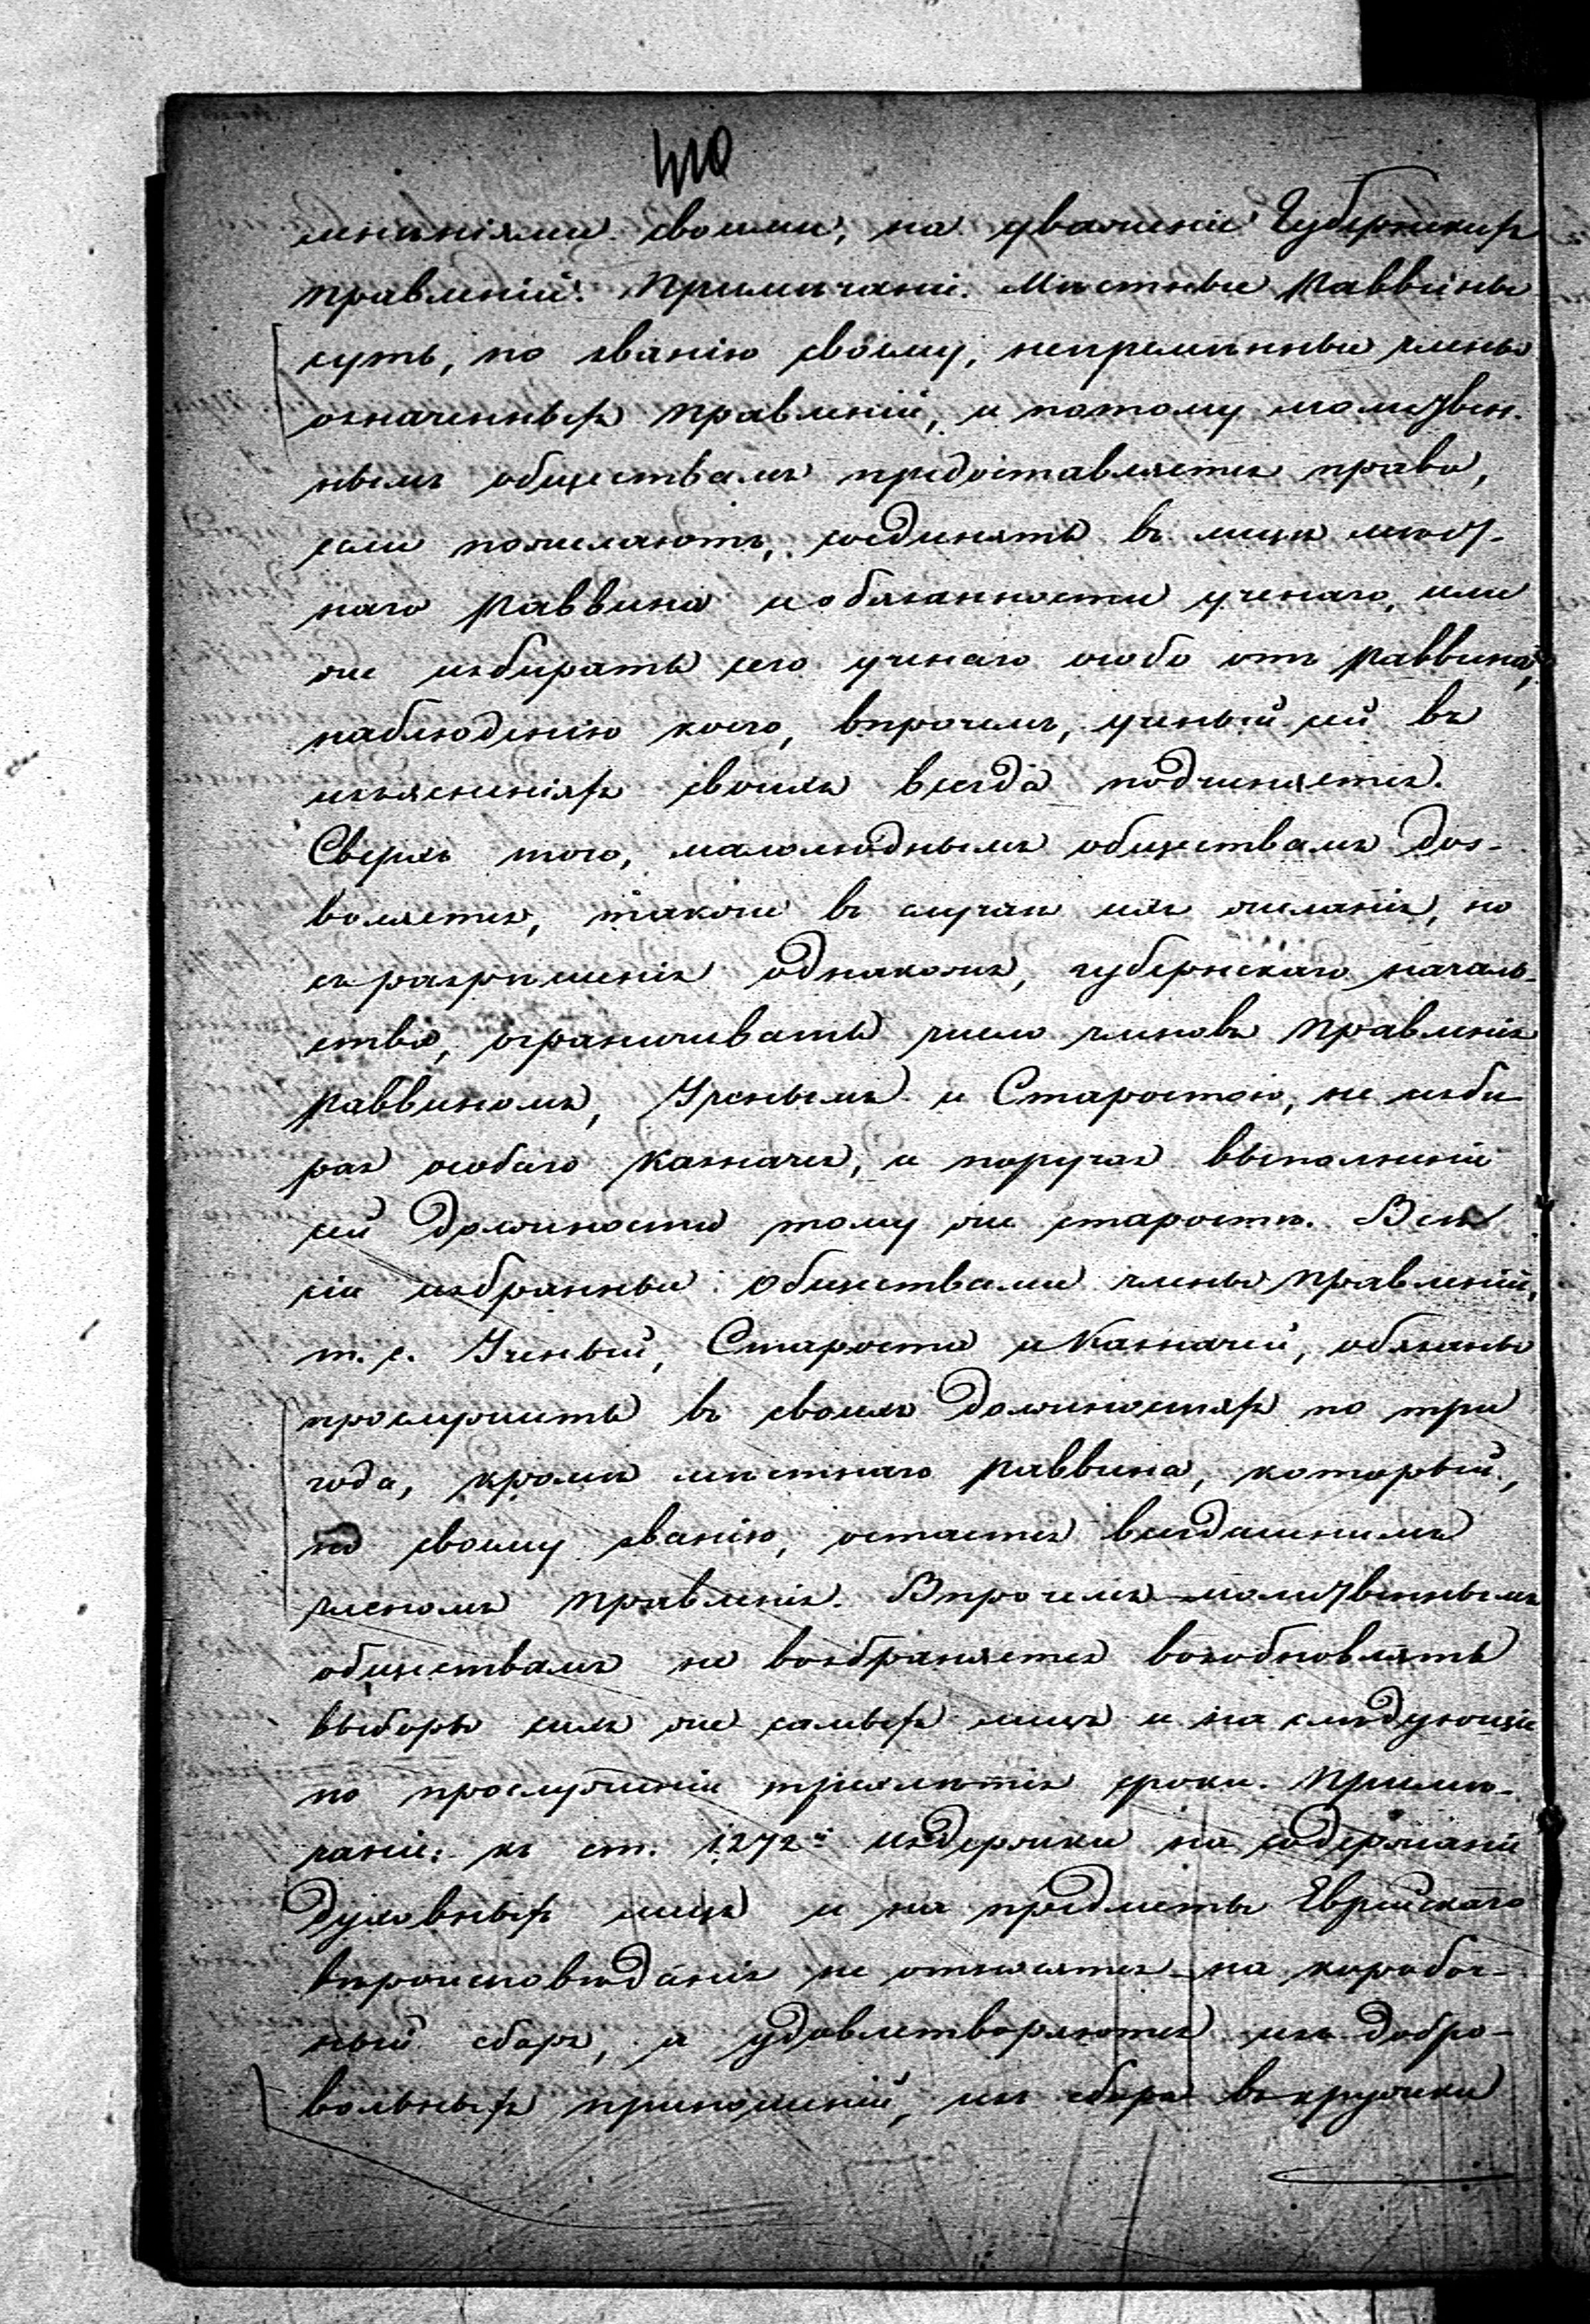 мнѣніями своими, на уваженіе Губернскихъ
Правленій. Примѣчаніе. Мѣстные Раввины
суть, по званію своему, непремѣнные члены
означенныхъ Правленій, и потому молитвен-
нымъ обществамъ предоставляется право,
если пожелаютъ, соединять въ лицѣ мѣст-
наго Раввина и обязанности ученаго, или
же избирать сего ученаго особо отъ Раввина,
наблюденію коего, впрочемъ, ученый сей въ
изъясненіяхъ своихъ всегда подчиняется.
Сверхъ того, малолюднымъ обществамъ доз-
воляется, также въ случаѣ ихъ желанія, но
съ разрѣшенія однакожъ, губернскаго началь-
ства, ограничивать число членовъ Правленія
Раввиномъ, Ученымъ и Старостою, не изби-
рая особаго Казначея, и поручая выполненіе
сей должности тому же старостѣ. Всѣ
сіи избранные Обществами члены Правленій,
т. е. Ученый, Староста и Казначей, обязаны
прослужить въ своихъ должностяхъ по три
года, кромѣ мѣстнаго Раввина, который,
по своему званію, остается всегдашнимъ
членомъ Правленія. Впрочемъ молитвеннымъ
обществамъ не возбраняется возобновлять
выборы сихъ же самыхъ лицъ и на слѣдующіе
по прослуженіи трехлѣтія сроки. Примѣ-
чаніе: къ ст. 1272й Издержки на содержаніе
Духовныхъ лицъ и на предметы Еврейскаго
вѣроисповѣданія не относятся на коробоч-
ный сборъ, а удовлетворяются изъ добро-
вольныхъ приношеній, изъ сбора въ кружки